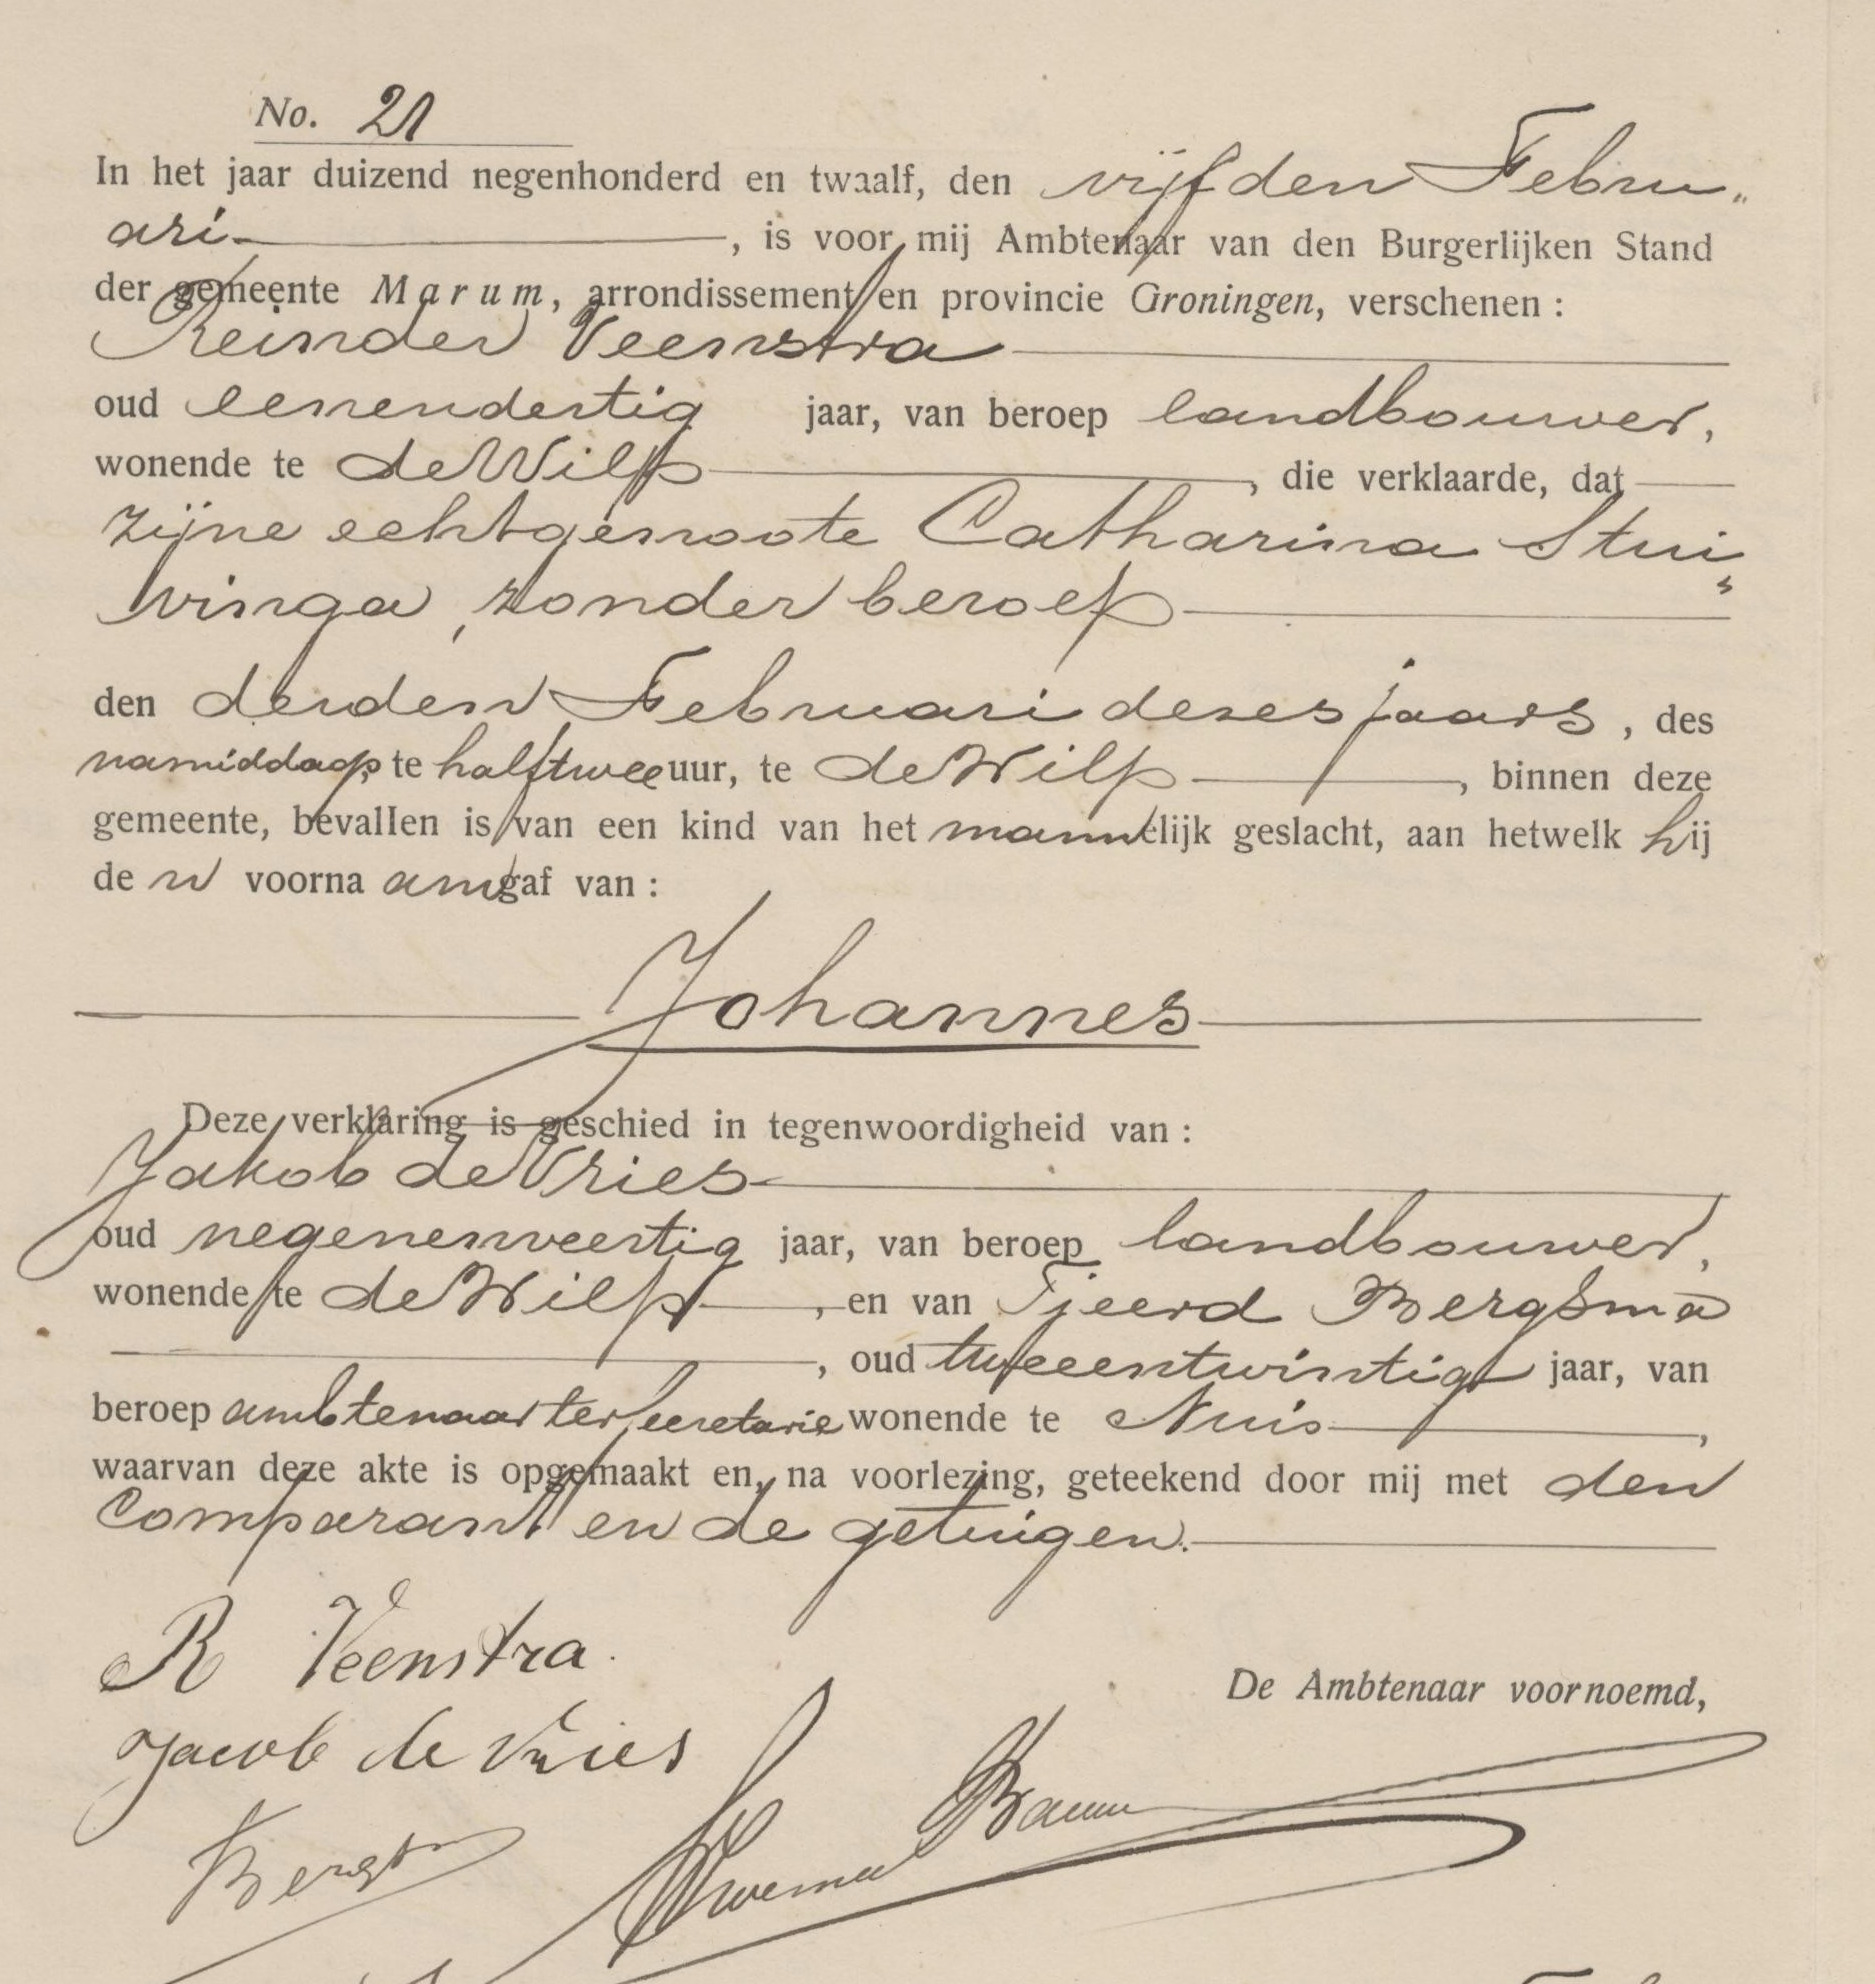 No. 21
In het jaar duizend negenhonderd en twaalf, den vijfden Febru„
ari , is voor mij Ambtenaar van den Burgerlijken Stand
der gemeente Marum, arrondissement en provincie Groningen, verschenen :
Reinder Veenstra
oud eenendertig jaar, van beroep landbouwer,
wonende te de Wilp , die verklaarde, dat
zijne echtgenoote Catharina Stui„
vinga, zonder beroep
den derden Februari dezes jaars, des
namiddags te half twee uur, te de Wilp , binnen deze
gemeente, bevallen is van een kind van het mannelijk geslacht, aan hetwelk hij
de n voorna am gaf van :
Johannes
Deze verklaring is geschied in tegenwoordigheid van :
Jakob de Vries
oud negenenveertig jaar, van beroep landbouwer,
wonende te de Wilp , en van Tjeerd Bergsma
, oud tweeentwintig jaar, van
beroep ambtenaar ter secretarie wonende te Nuis ,
waarvan deze akte is opgemaakt en, na voorlezing, geteekend door mij met den
Comparant en de getuigen.
R Veenstra.
De Ambtenaar voornoemd,
Jacob de Vries